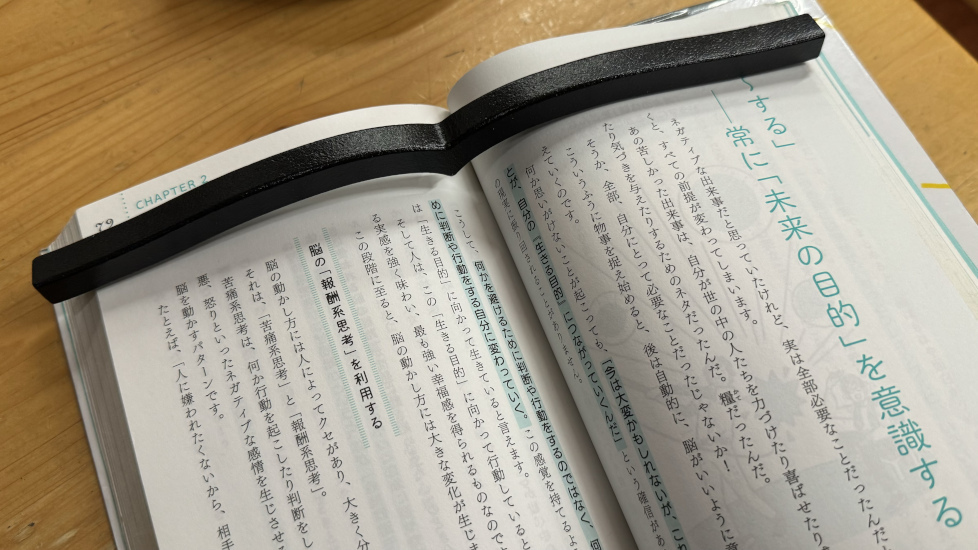 ～する」
──常に「未来の目的」を意識する
ネガティブな出来事だと思っていたけれど、実は全部必要なことだったんだ
くと、すべての前提が変わってしまいます。
あの苦しかった出来事は、自分が世の中の人たちを力づけたり喜ばせたり
たり気づきを与えたりするためのネタだったんだ。糧だったんだ。
そうか、全部、自分にとって必要なことだったんじゃないか!
こういうふうに物事を捉え始めると、後は自動的に、脳がいいように意
えていくのです。
何か思いがけないことが起こっても、「今は大変かもしれないが、これ
とが、自分の『生きる目的』につながっていくんだ」という確信があ
の現実に振り回されることがありません。
こうして、何かを避けるために判断や行動をするのではなく、何
めに判断や行動をする自分に変わっていく。この感覚を持てるよ
は「生きる目的」に向かって生きていると言えます。
そして人は、この「生きる目的」に向かって行動していると
る実感を強く味わい、最も強い幸福感を得られるものなので
この段階に至ると、脳の動かし方には大きな変化が生じま
脳の「報酬系思考」を利用する
脳の動かし方には人によってクセがあり、大きく分
それは、「苦痛系思考」と「報酬系思考」。
苦痛系思考は、何か行動を起こしたり判断をし
悪、怒りといったネガティブな感情を生じさせ
脳を動かすパターンです。
たとえば、「人に嫌われたくないから、相手
CHAPTER 2
79